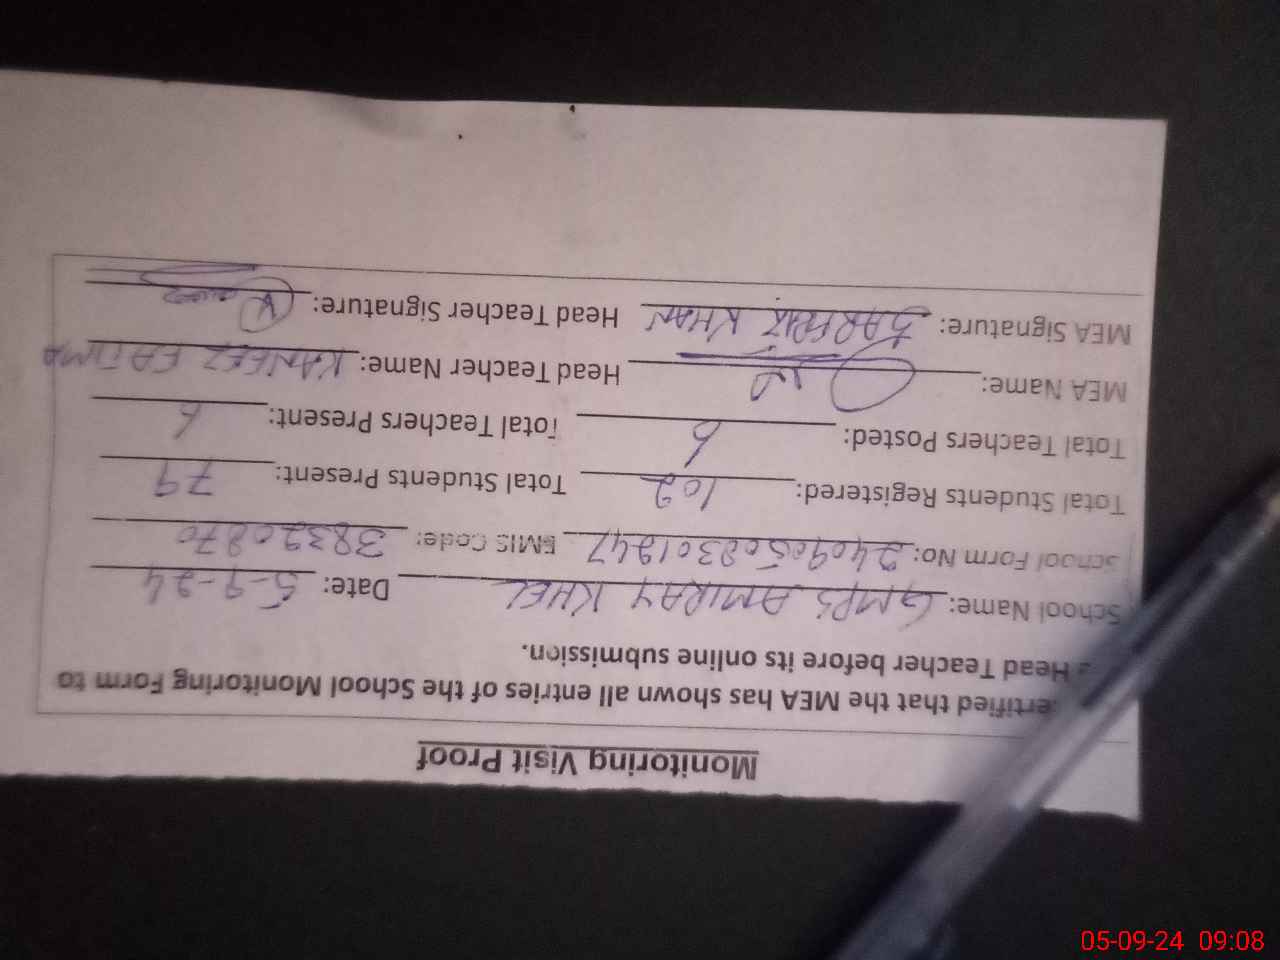 Monitoring Visit Proof
ertified that the MEA has shown all entries of the School Monitoring Form to
Head Teacher before its online submission.
School Name: GMPS AMIRAY KHEL Date: 5-9-24
School Form No: 24090508301247 EMIS Code: 38320870
Total Students Registered: 102 Total Students Present: 79
Total Teachers Posted: 6 Total Teachers Present: 6
MEA Name: Head Teacher Name: KANEEZ FATIMA
MEA Signature: SARFRAZ KHAN Head Teacher Signature:
05-09-24 09:08